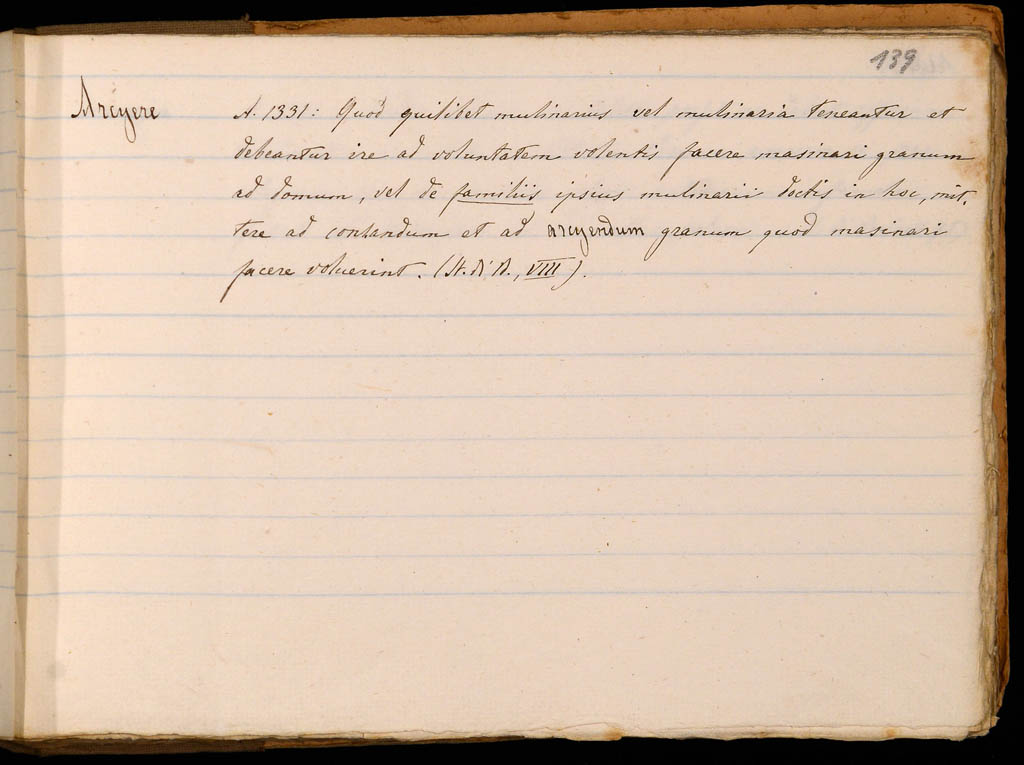 139
Arcyere A. 1331: Quod quilibet mulinarius vel mulinaria teneantur et
debeantur ire ad voluntatem volentis facere masinari granum
ad domum, vel de familiis ipsius mulinarii doctis in hoc, mit-
tere ad conzandum et ad arcyendum granum quod masinari
facere voluerint. (St. di B., VIII).